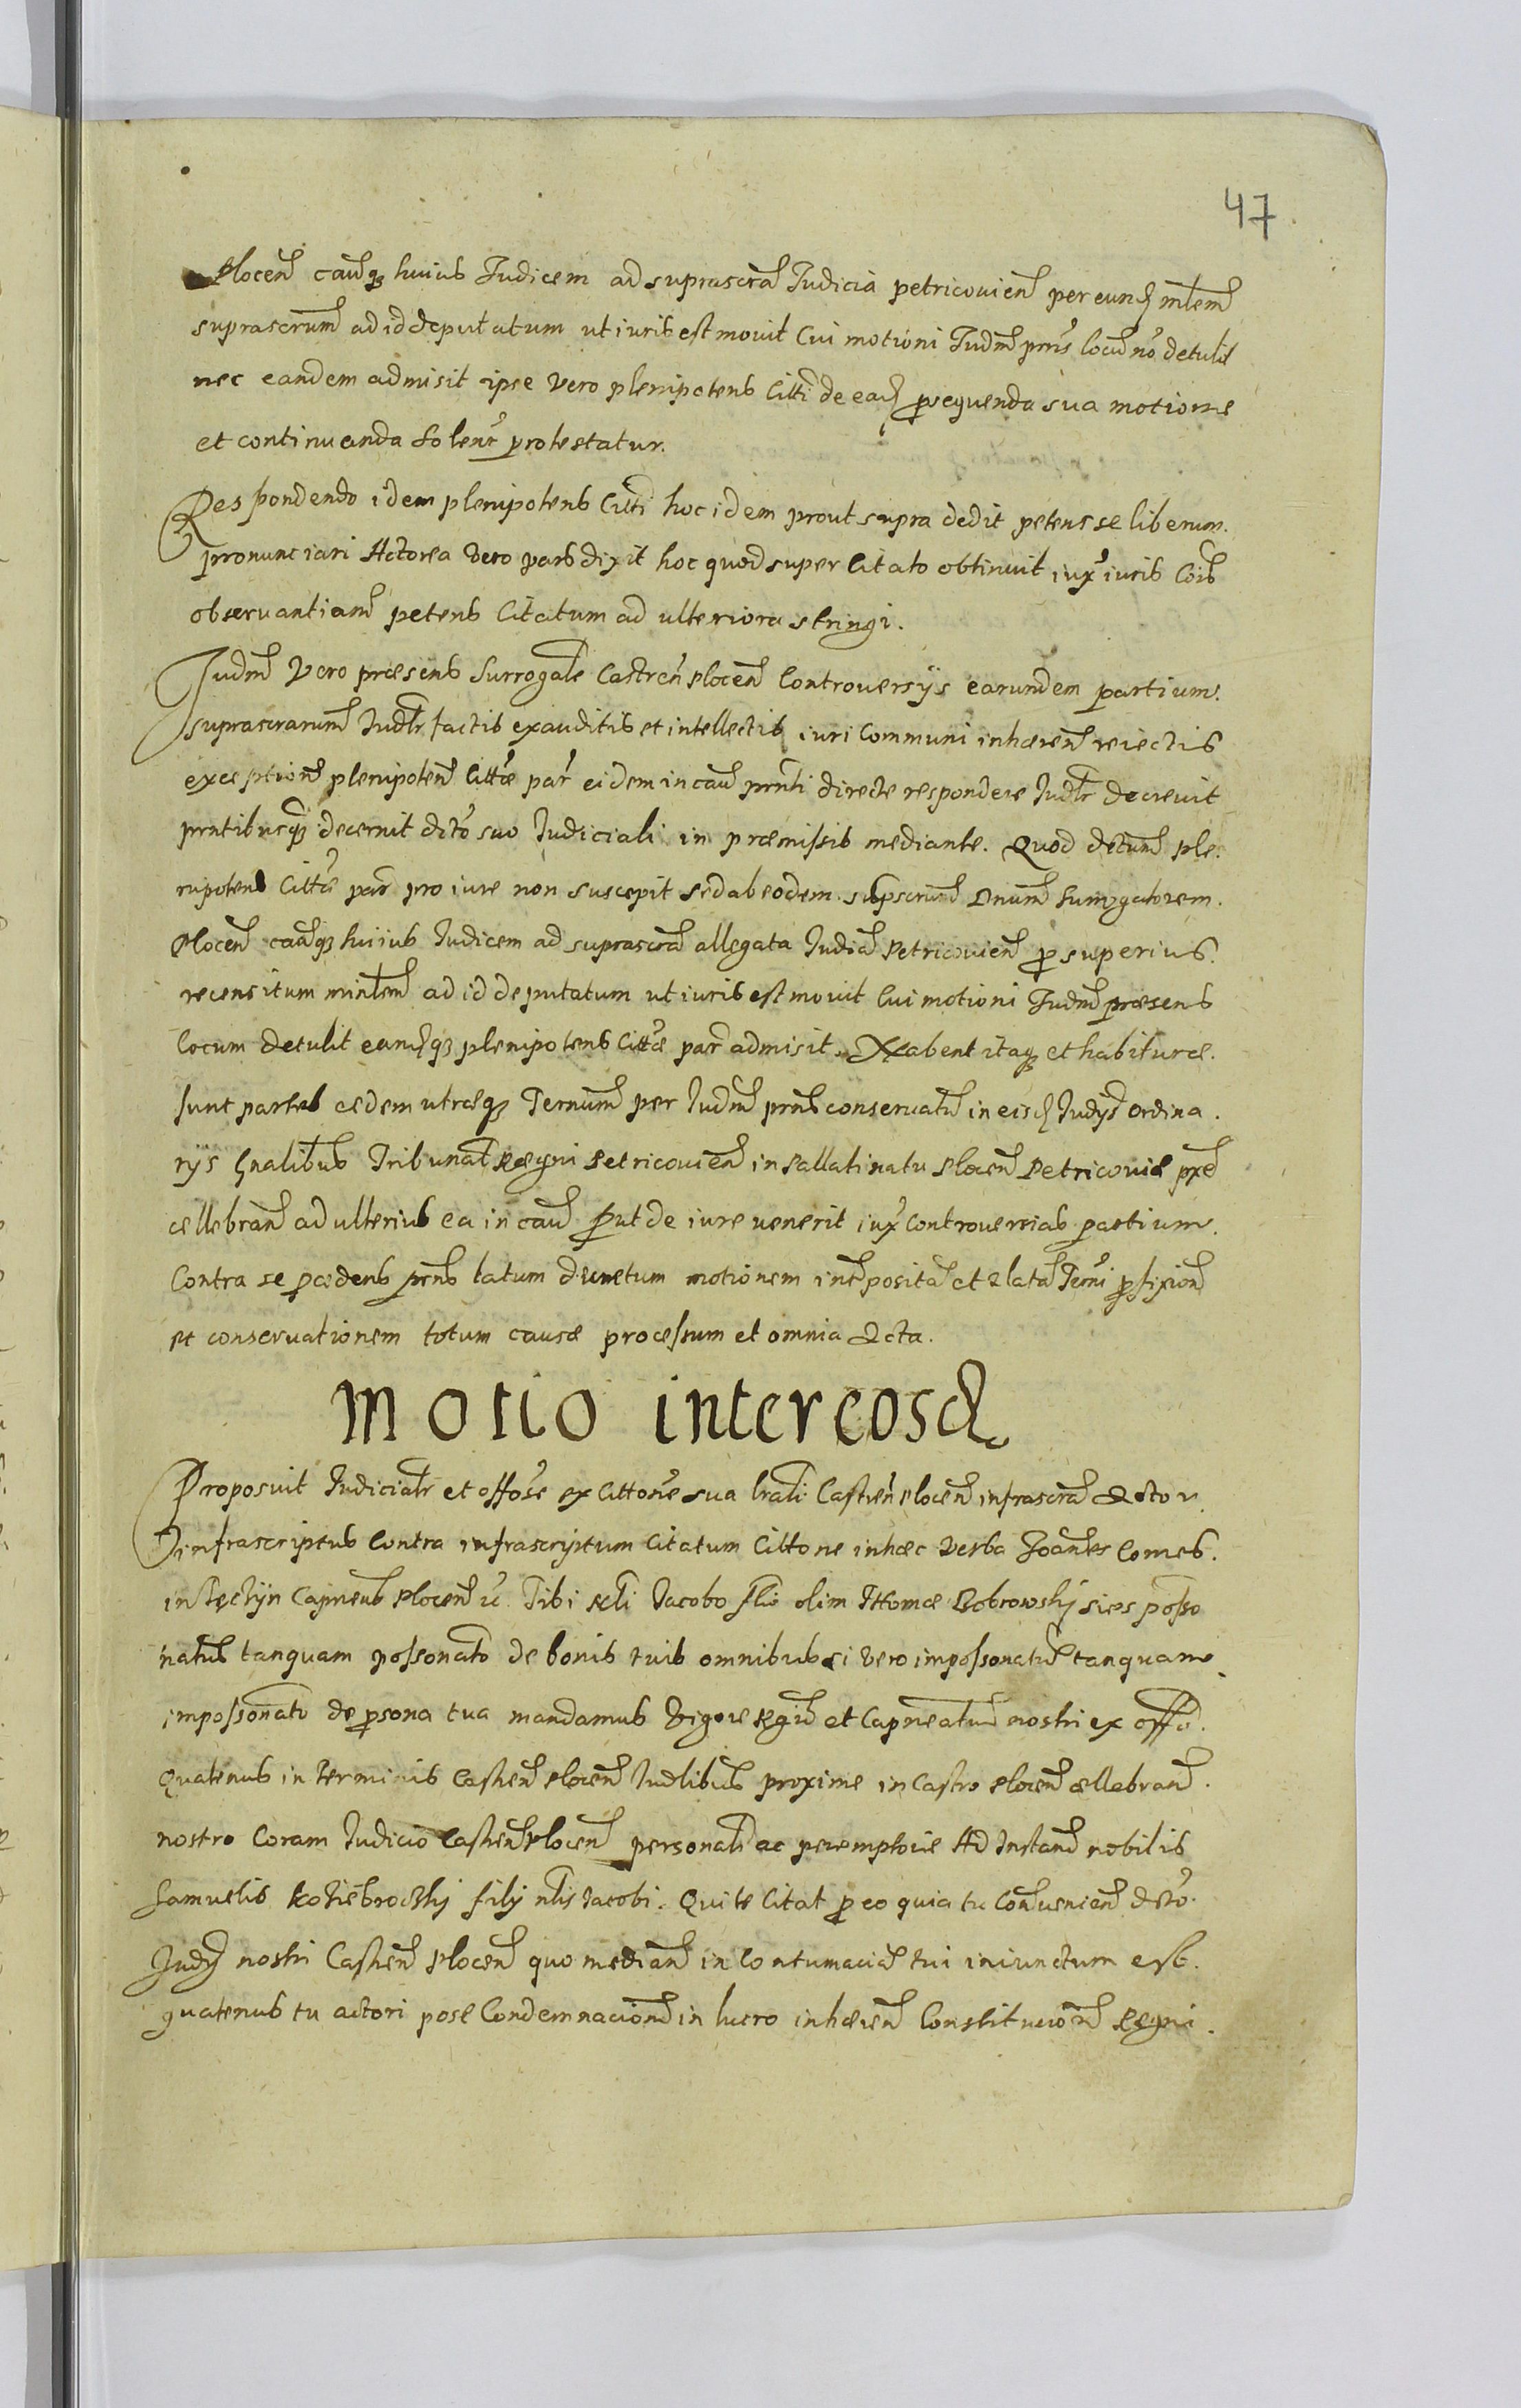 47
Plocen̄ causq₃ huius Judicem ad suprascra Judicia petricouien̄ per eund mlem
suprascrum ad id deputatum ut iuris est mouit Cui motioni Judm prns locu no detulit
nec eandem admisit ipse Vero plenipotens Citti de ead prosequenda sua motione
et continuanda Solenr protestatur.
Respondendo idem plenipotens Citti hoc idem prout supra dedit petens se liberum.
pronunciari Actorea Vero pars dixit hoc quod super Citato obtinuit iuxta iuris Cois
obseruantiam petens Citatum ad ulteriora stringi.
Judm Vero præsens Surrogale Castren Plocen Controuersijs earundem partium.
suprascrarum Judlr factis exauditis et intellectis iuri Communi inhæren reiectis
exception plenipoten Cittæ par eidem in cau prnti directe respondere Judlr decreuit
prntibusq₃ decernit dcto suo Judiciali in præmissis mediante. Quod dctum ple.
nipotens Cittæ par pro iure non suscepit sed ab eodem suprscrum Dnum Surrogatorem.
Plocen causq₃ huiius Judicem ad suprascra allegata Judia Petricouien pr superius.
recensitum minlem ad id deputatum ut iuris est mouit Cui motioni Judm præsens
locum detulit eamq₃ plenipotens Cittæ par admisit. Habent itaq₃ et habituræ.
sunt partes eædem utræq₃ Ternum per Judm prns conseruatu in eisd Judijs ordina.
rijs Gnalibus Tribunal Regni Petricouien in Pallatinatu Plocen Petricouiæ pxe
cellebran ad ulterius ea in cau put de iure uenerit iux Controuersias partium.
Contra se procedens prns latum decretum motionem interposita et rlata Terni prfixion
et conseruationem totum causæ processum et omnia Acta.
Motio inter eosd
Proposuit Judicialr et offose ex Cittone sua lrali Castren Plocen infrascra Actor
infrascriptus Contra infrascriptum Citatum Cittone in hæc Verba Joannes Comes.
in Tęczÿn Capneus Plocen &c. Tibi Jacobo flio olim Thomæ Bobrowskÿ sies posso
natus tanquam possonato de bonis tuis omnibus si Vero impossonatus tanquam
impossonato de persona tua mandamus Vigore Regia et Capneatus nostri ex offo.
Quatenus in Terminis Castren Plocen Judlibus proxime in Castro Plocen cellebran.
nostro Coram Judicio Castren Plocen personalr ac peremptorie Ad Instan nobilis
Samuelis Koziebrodzkÿ filÿ nlis Jacobi. Qui te Citat pr eo quia tu Conuenien dcto.
Judÿ nostri Castren Plocen quo median in Contumacia tui iniunctum est.
quatenus tu actori post Condemnacion in lucro inhæren Constitucion Regni.